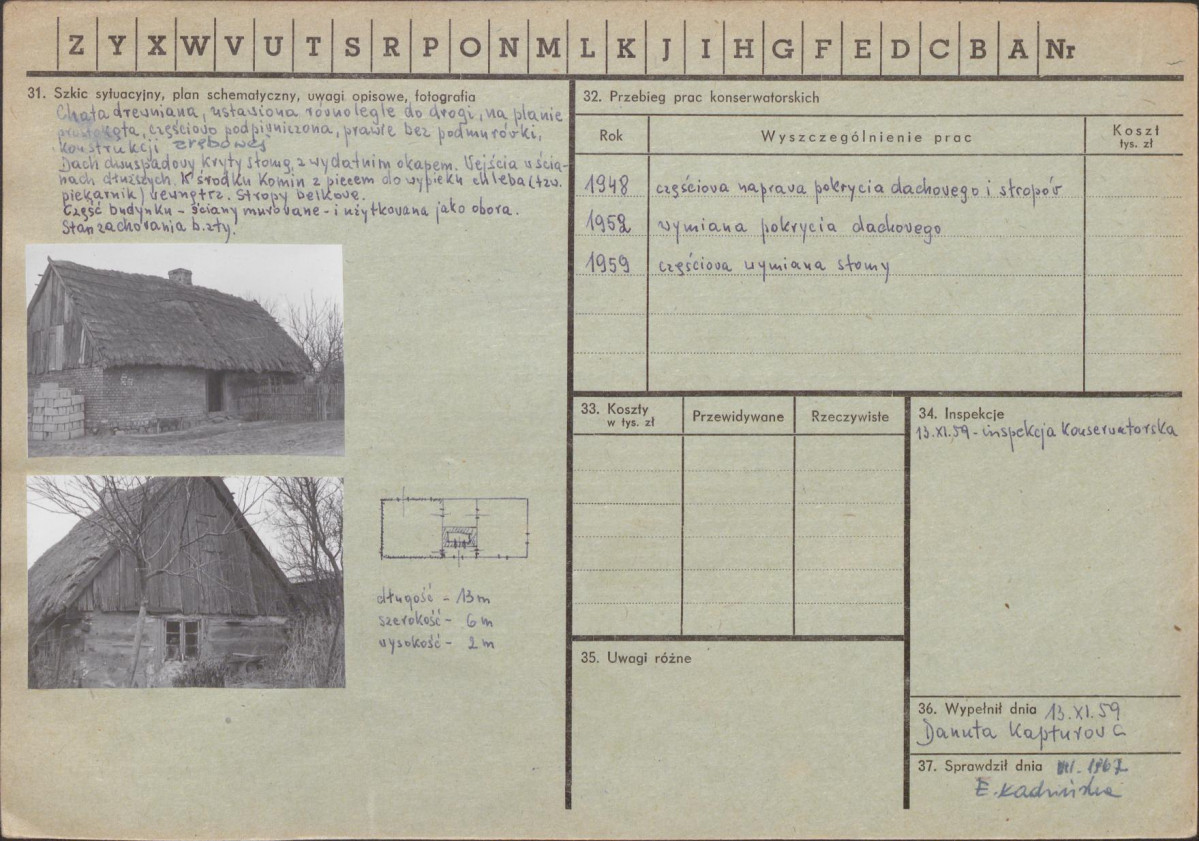 Z Y X W V U T S R P O N M L K J I H G F E D C B A Nr
31. Szkic sytuacyjny, plan schematyczny, uwagi opisowe, fotografia
Chata drewniana, ustawiona równolegle do drogi, na planie
prostokąta, częściowo podpiwniczona, prawie bez podmurówki,
konstrukcji zrębowej
Dach dwuspadowy kryty słomą z wydatnim okapem. Wejścia w ścia-
nach dłuższych. W środku Komin z piecem do wypieku chleba (tzw.
piekarnik) wewnątrz. Stropy belkowe.
Część budynku - ściany murowane - i użytkowana jako obora.
Stan zachowania b. zły.
długość - 13 m
szerokość - 6 m
wysokość - 2 m
32. Przebieg prac konserwatorskich
Rok Wyszczególnienie prac Koszt
tys. zł
1948 częściowa naprawa pokrycia dachowego i stropów
1952 wymiana pokrycia dachowego
1959 częściowa wymiana słomy
33. Koszty Przewidywane Rzeczywiste
w tys. zł
34. Inspekcje
13.XI.59 - inspekcja Konserwatorska
35. Uwagi różne
36. Wypełnił dnia 13.XI.59
Danuta Kapturowa
37. Sprawdził dnia 1967